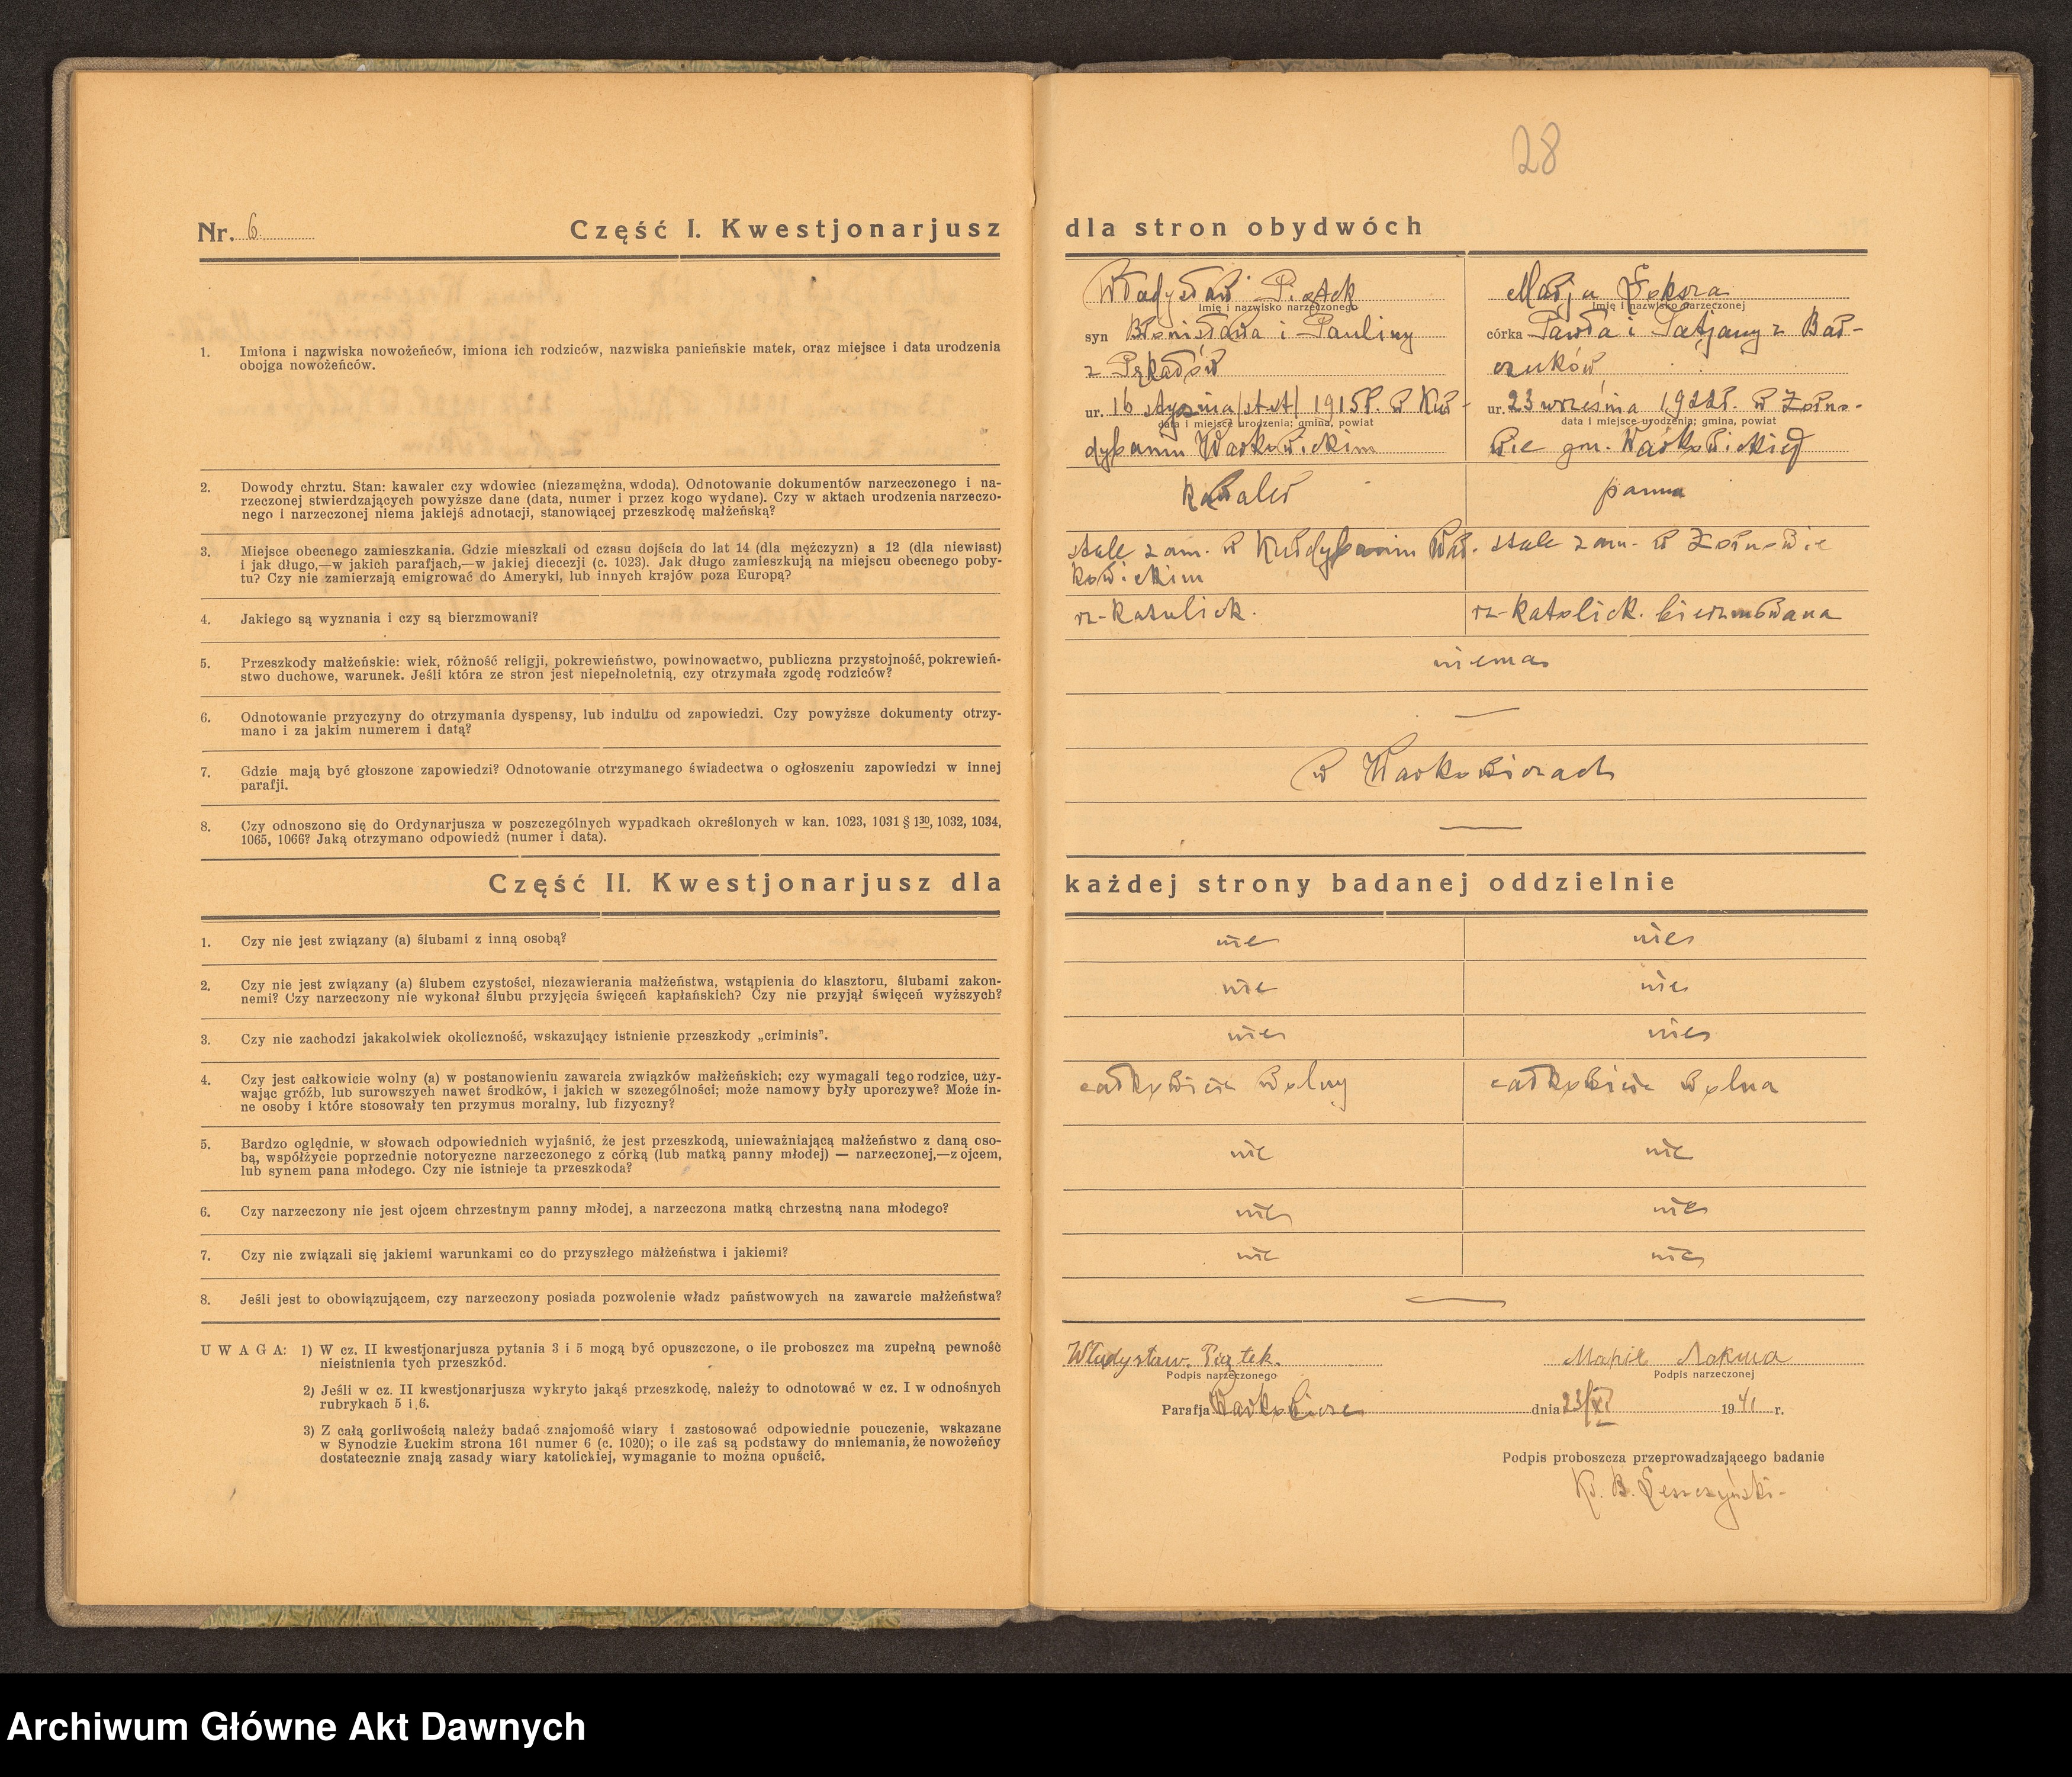 28
Nr. 6 Część I. Kwestjonarjusz dla stron obydwóch
1. Imiona i nazwiska nowożeńców, imiona ich rodziców, nazwiska panieńskie matek, oraz miejsce i data urodzenia
obojga nowożeńców.
Władysław Piątek
Imię i nazwisko narzeczonego
syn Bronisława i Pauliny
z
ur. 16 stycznia /st. st/ 1915r. w Kur-
data i miejsce urodzenia; gmina, powiat
dybaniu Warkowickim
Marja
Imię i nazwisko narzeczonej
córka Pawła i Tatjany z Bar-
czuków
ur. 23 września 1922r. w Żorno-
data i miejsce urodzenia; gmina, powiat
wie gm. Warkowickiej
2. Dowody chrztu. Stan: kawaler czy wdowiec (niezamężna, wdoda). Odnotowanie dokumentów narzeczonego i na-
rzeczonej stwierdzających powyższe dane (data, numer i przez kogo wydane). Czy w aktach urodzenia narzeczo-
nego i narzeczonej niema jakiejś adnotacji, stanowiącej przeszkodę małżeńską?
kawaler panna
3. Miejsce obecnego zamieszkania. Gdzie mieszkali od czasu dojścia do lat 14 (dla mężczyzn) a 12 (dla niewiast)
i jak długo,—w jakich parafjach,—w jakiej diecezji (c. 1023). Jak długo zamieszkują na miejscu obecnego poby-
tu? Czy nie zamierzają emigrować do Ameryki, lub innych krajów poza Europą?
stale zam. w Kurdybaniu War-
kowickim
stale zam. w Żornowie
4. Jakiego są wyznania i czy są bierzmowani?
rz-katolick. rz-katolick. bierzmowana
5. Przeszkody małżeńskie: wiek, różność religji, pokrewieństwo, powinowactwo, publiczna przystojność, pokrewień-
stwo duchowe, warunek. Jeśli która ze stron jest niepełnoletnią, czy otrzymała zgodę rodziców?
niema
6. Odnotowanie przyczyny do otrzymania dyspensy, lub indultu od zapowiedzi. Czy powyższe dokumenty otrzy-
mano i za jakim numerem i datą?
—
7. Gdzie mają być głoszone zapowiedzi? Odnotowanie otrzymanego świadectwa o ogłoszeniu zapowiedzi w innej
parafji.
w Warkowiczach
8. Czy odnoszono się do Ordynarjusza w poszczególnych wypadkach określonych w kan. 1023, 1031 § 1³⁰, 1032, 1034,
1065, 1066? Jaką otrzymano odpowiedź (numer i data).
—
Część II. Kwestjonarjusz dla każdej strony badanej oddzielnie
1. Czy nie jest związany (a) ślubami z inną osobą?
nie nie
2. Czy nie jest związany (a) ślubem czystości, niezawierania małżeństwa, wstąpienia do klasztoru, ślubami zakon-
nemi? Czy narzeczony nie wykonał ślubu przyjęcia święceń kapłańskich? Czy nie przyjął święceń wyższych?
nie nie
3. Czy nie zachodzi jakakolwiek okoliczność, wskazujący istnienie przeszkody „criminis".
nie nie
4. Czy jest całkowicie wolny (a) w postanowieniu zawarcia związków małżeńskich; czy wymagali tego rodzice, uży-
wając gróźb, lub surowszych nawet środków, i jakich w szczególności; może namowy były uporczywe? Może in-
ne osoby i które stosowały ten przymus moralny, lub fizyczny?
całkowicie wolny całkowicie wolna
5. Bardzo oględnie, w słowach odpowiednich wyjaśnić, że jest przeszkodą, unieważniającą małżeństwo z daną oso-
bą, współżycie poprzednie notoryczne narzeczonego z córką (lub matką panny młodej) — narzeczonej,—z ojcem,
lub synem pana młodego. Czy nie istnieje ta przeszkoda?
nie nie
6. Czy narzeczony nie jest ojcem chrzestnym panny młodej, a narzeczona matką chrzestną nana młodego?
nie nie
7. Czy nie związali się jakiemi warunkami co do przyszłego małżeństwa i jakiemi?
nie nie
8. Jeśli jest to obowiązującem, czy narzeczony posiada pozwolenie władz państwowych na zawarcie małżeństwa?
—
UWAGA: 1) W cz. II kwestjonarjusza pytania 3 i 5 mogą być opuszczone, o ile proboszcz ma zupełną pewność
nieistnienia tych przeszkód.
2) Jeśli w cz. II kwestjonarjusza wykryto jakąś przeszkodę, należy to odnotować w cz. I w odnośnych
rubrykach 5 i 6.
3) Z całą gorliwością należy badać znajomość wiary i zastosować odpowiednie pouczenie, wskazane
w Synodzie Łuckim strona 161 numer 6 (c. 1020); o ile zaś są podstawy do mniemania, że nowożeńcy
dostatecznie znają zasady wiary katolickiej, wymaganie to można opuścić.
Władysław. Piątek.
Podpis narzeczonego
Podpis narzeczonej
Parafja Warkowicze dnia 23/XI 1941 r.
Podpis proboszcza przeprowadzającego badanie
Ks. B. Leszczyński-
Archiwum Główne Akt Dawnych